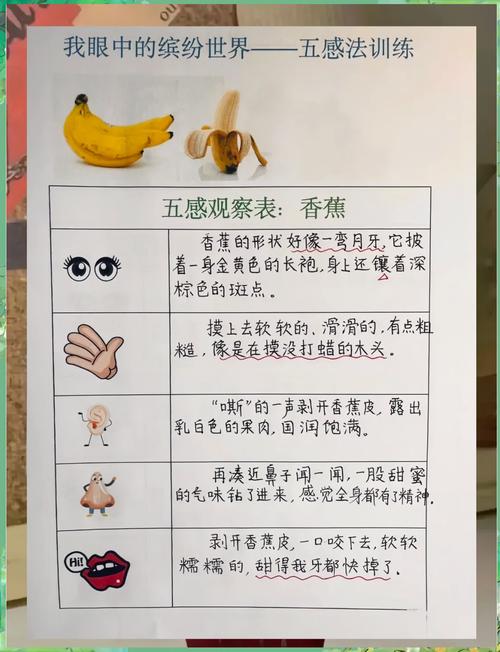 我眼中的缤纷世界——五感法训练
五感观察表：香蕉
香蕉的形状好像一弯月牙，它披
着一身金黄色的长袍，身上还镶着深
棕色的斑点。
摸上去软软的、滑滑的，有点粗
糙，像是在摸没打蜡的木头。
“嘶”的一声剥开香蕉皮，露出
乳白色的果肉，国润饱满。
再凑近鼻子闻一闻，一股甜蜜
的气味钻了进来，感觉全身都有了精神。
Hi!
剥开香蕉皮，一口咬下去，软软
糯糯的，甜得我牙都快掉了。